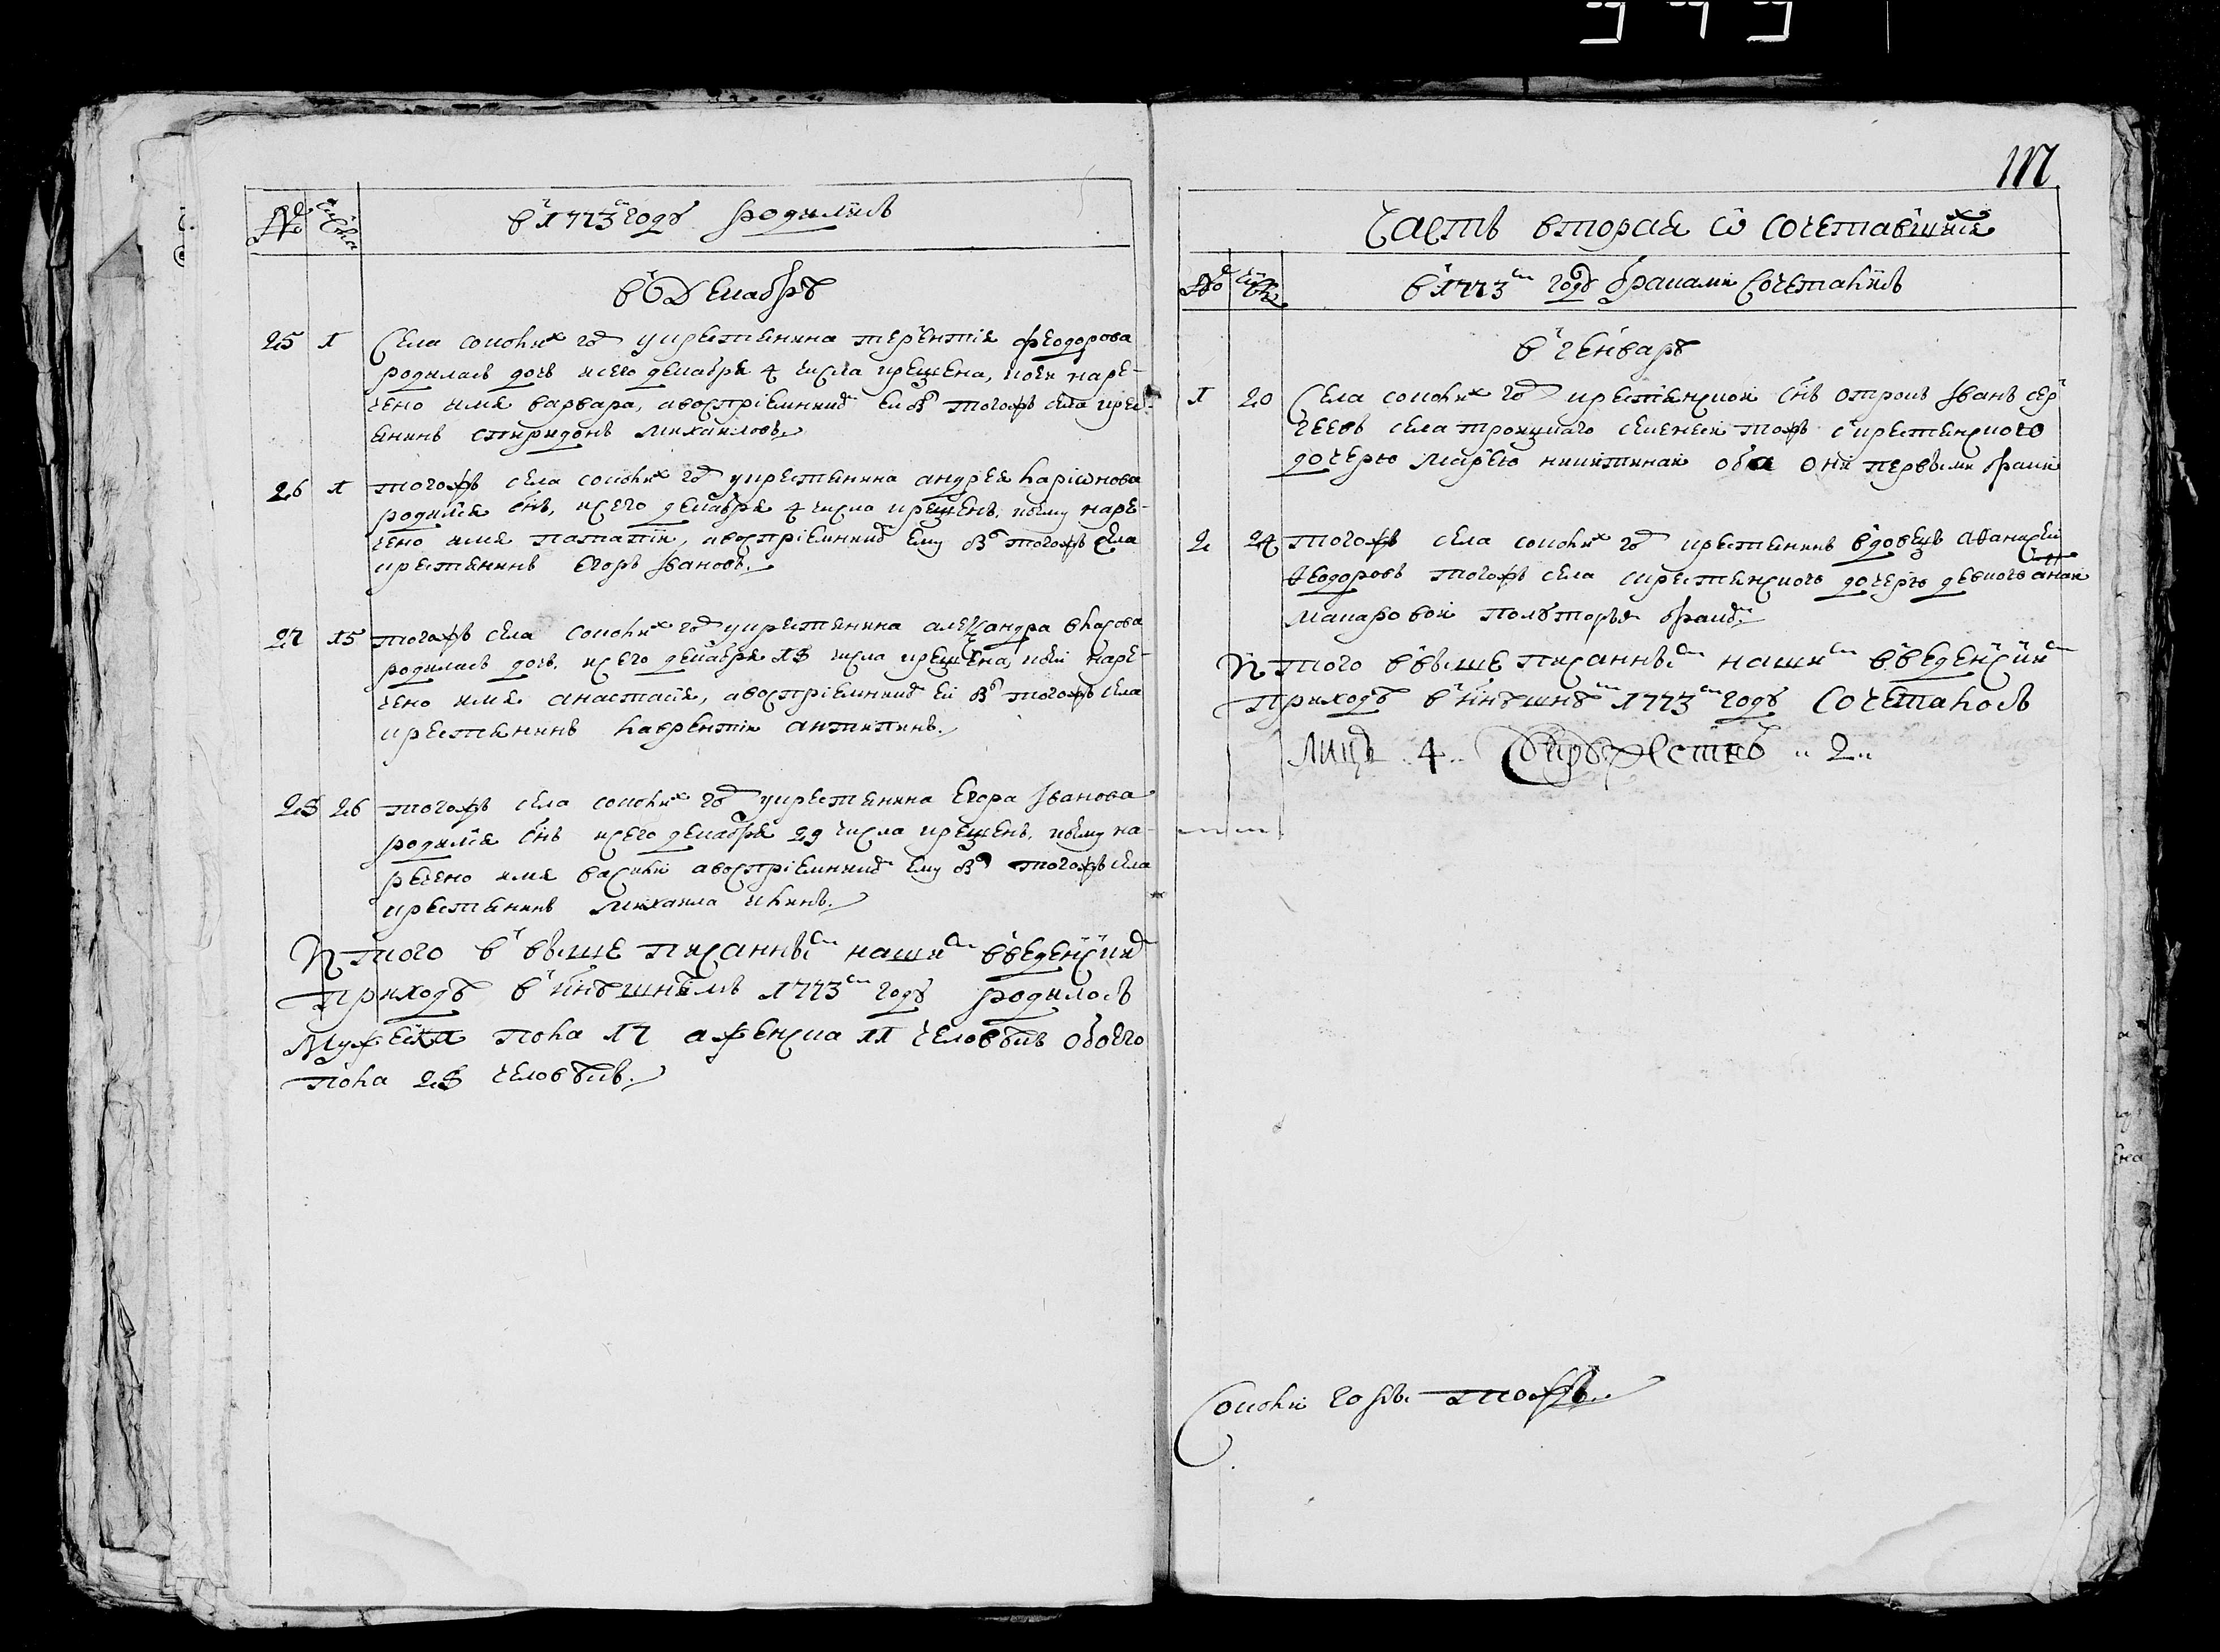 № числа въ 1773м году родились
въ Декабрѣ
25 1 Села соколихъ горъ у крестьянина терентия феодорова
родилась дочь и сего декабря 4 числа крещена, и коей наре-
чено имя варвара, а восприемникомъ ей былъ того жъ села крест-
янинъ спиридонъ михаиловъ
26 1 того жъ села соколихъ горъ у крестьянина андрея ларионова
родился снъ, и сего декабря 4 числа крещенъ, и коему наре-
чено имя патапий, а восприемникомъ ему былъ того жъ села
крестьянинъ Егоръ Ивановъ
27 15 того жъ села соколихъ горъ у крестьянина алеѯандра власова
родилась дочь, и сего декабря 18 числа крещена, и коей наре-
чено имя анастасия, а восприемникомъ ей былъ того жъ села
крестьянинъ лаврентий антипинъ
28 26 того жъ села соколихъ горъ у крестьянина Егора Иванова
родился снъ и сего декабря 29 числа крещенъ, и коему на-
речено имя василий а восприемникомъ ему былъ того жъ села
крестьянинъ михаила илинъ
Итого в выше писанномъ нашемъ введенскомъ
приходѣ в ннѣшнѣмъ 1773м году родилось
Мужеска пола 17 а женска 11 человѣкъ обоего
пола 28 человѣкъ
117
Часть вторая ѿ сочетавшихся
№ числа въ 1773м годѣ браками сочетались
въ генварѣ
1 20 Села соколихъ горъ крестьянской снъ отрокъ Иванъ сер
геевъ села троицкаго сменясь тожъ с крестьянского
дочерью марьею никитиной оба они первымъ бракомъ
2 24 того жъ села соколихъ горъ крестьянинъ вдовецъ аѳанасей
ѳеодоровъ того жъ села с крестьянского дочерью девкою анной
макаровой полуторымъ бракомъ
Итого в выше писанномъ нашемъ введенскомъ
приходѣ в ннѣшнѣмъ 1773м году сочеталось
лицъ 4 супружествъ 2
Соколи горы тожъ